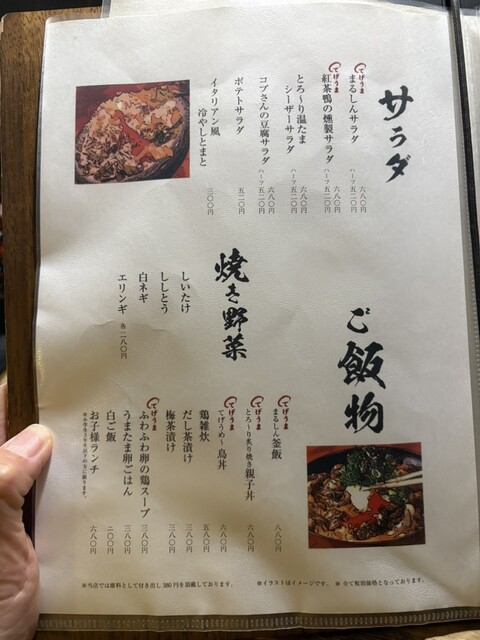 サラダ
てげうま
まるしんサラダ
六八〇円
ハーフ五二〇円
てげうま
紅茶鴨の燻製サラダ
六八〇円
ハーフ五二〇円
とろ〜り温たま
シーザーサラダ
六八〇円
ハーフ五二〇円
コブさんの豆腐サラダ
六八〇円
ハーフ五二〇円
ポテトサラダ
五二〇円
イタリアン風
冷やしとまと
三〇〇円
焼き野菜
しいたけ
ししとう
白ネギ
エリンギ 各二八〇円
ご飯物
てげうま
まるしん釜飯 八八〇円
てげうま
とろ〜り炙り焼き親子丼 六八〇円
てげうま
てげうめ〜鳥丼 六八〇円
鶏雑炊 五八〇円
だし茶漬け 三八〇円
梅茶漬け 三八〇円
てげうま
ふわふわ卵の鶏スープ 三八〇円
うまたま卵ごはん 三八〇円
白ご飯 二〇〇円
お子様ランチ 六八〇円
※小学生までのお子様に限ります。
※イラストはイメージです。 ※全て税別価格となっております。
※当店では席料として付き出し380円を頂戴しております。